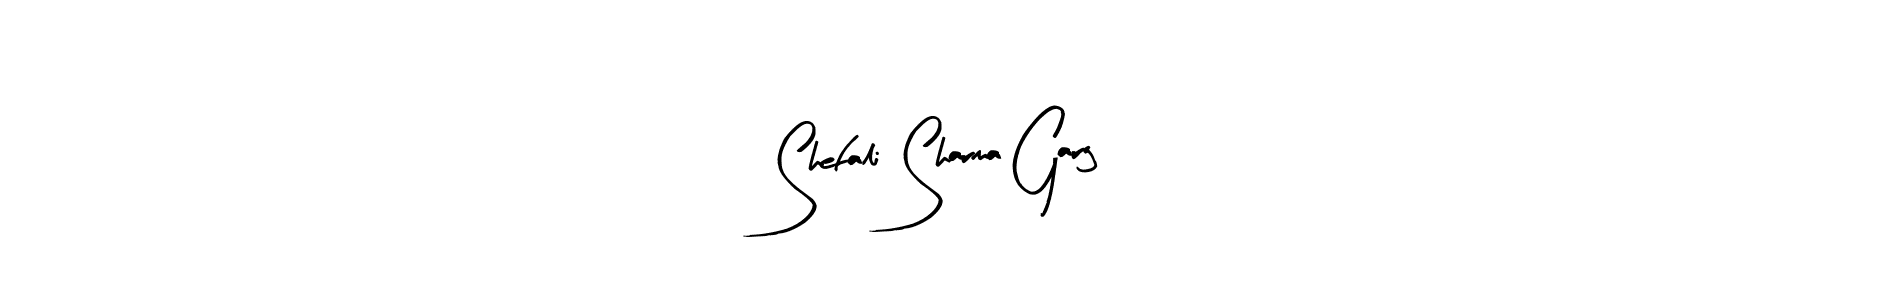 Shefali Sharma Garg